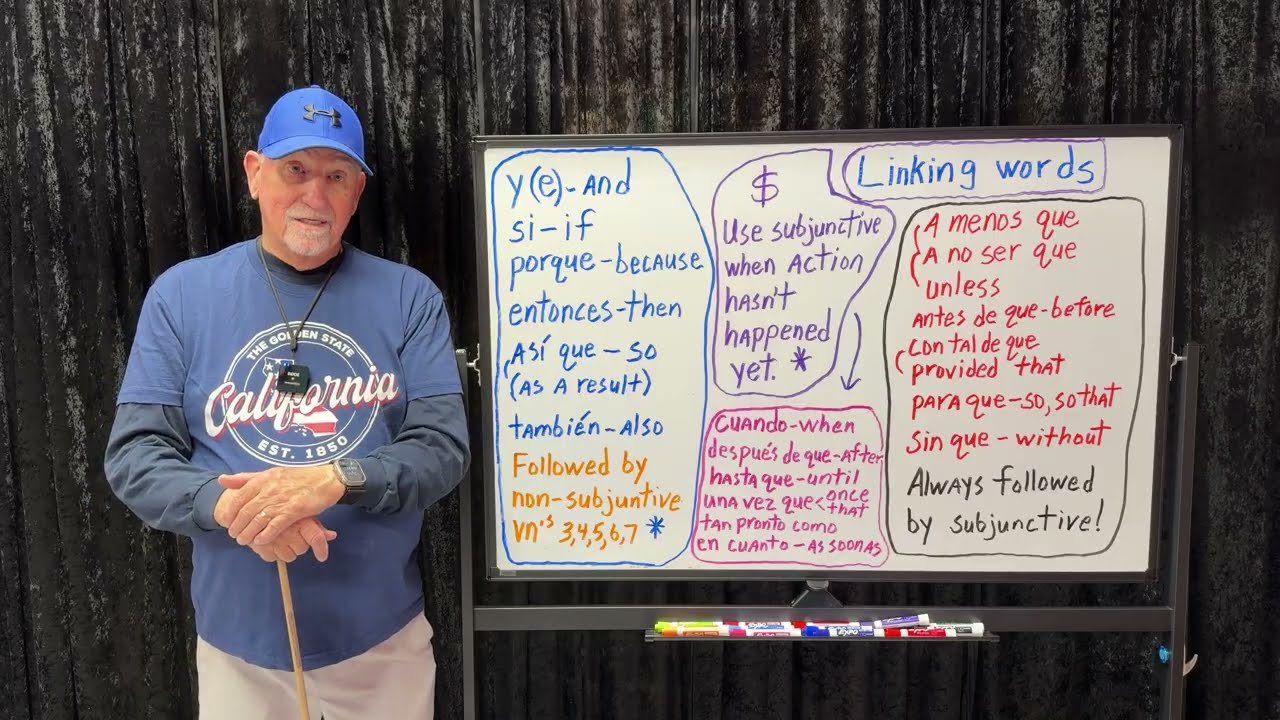 THE GOLDEN STATE
California
EST. 1850
y(e)-And
si-if
porque-because
entonces-then
Así que-so
(as a result)
también-Also
Followed by
non-subjuntive
VN's 3,4,5,6,7 *
$
Use subjunctive
when Action
hasn't
happened
yet. *
Cuando-when
después de que-After
hasta que-until
una vez que<once that
tan pronto como
en cuanto-as soon as
Linking words
A menos que
A no ser que
unless
antes de que-before
Con tal de que
provided that
para que-so, so that
sin que-without
Always followed
by subjunctive!
EXPO